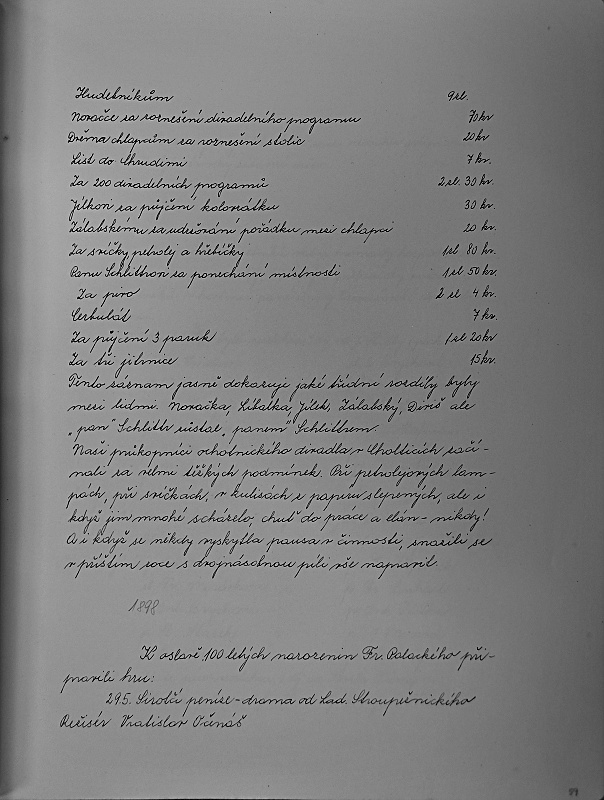 Hudebníkům 9 zl.
Novačce za roznešení divadelního programu 70 kr
Drěma chlapcům za roznešení stolic 20 kr
List do Chrudimi 7 kr.
Za 200 divadelních programů 2 zl. 30 kr.
Jílkovi za půjčení kolovrátku 30 kr.
Zálabskému za udržování pořádku mezi chlapci 20 kr.
Za svíčky, petrolej a hřebíčky 1 zl 80 kr.
Panu Schlittrovi za ponechání místnosti 1 zl 50 kr.
Za pivo 2 zl 4 kr.
Cerbulát 7 kr.
Za půjčení 3 paruk 1 zl 20 kr
Za tři jitrnice 15 kr.
Tento záznam jasně dokazuje jaké třídní rozdíly byly
mezi lidmi. Novačka, Libalka, Jílek, Zálabský, Diriš ale
„pan" Schlittr zůstal „panem" Schlittrem.
Naši průkopníci ochotnického divadla v Cholticích začí-
nali za velmi těžkých podmínek. Při petrolejových lam-
pách, při svíčkách, v kulisách z papíru slepených, ale i
když jim mnohé scházelo, chuť do práce a elán - nikdy!
A i když se někdy vyskytla pausa v činnosti, snažili se
v příštím roce s dvojnásobnou pílí vše napravit.
1898
K oslavě 100 letých narozenin Fr. Palackého při-
pravili hru:
295. Sirotčí peníze - drama od Lad. Stroupežnického
Režisér Vratislav Očenáš